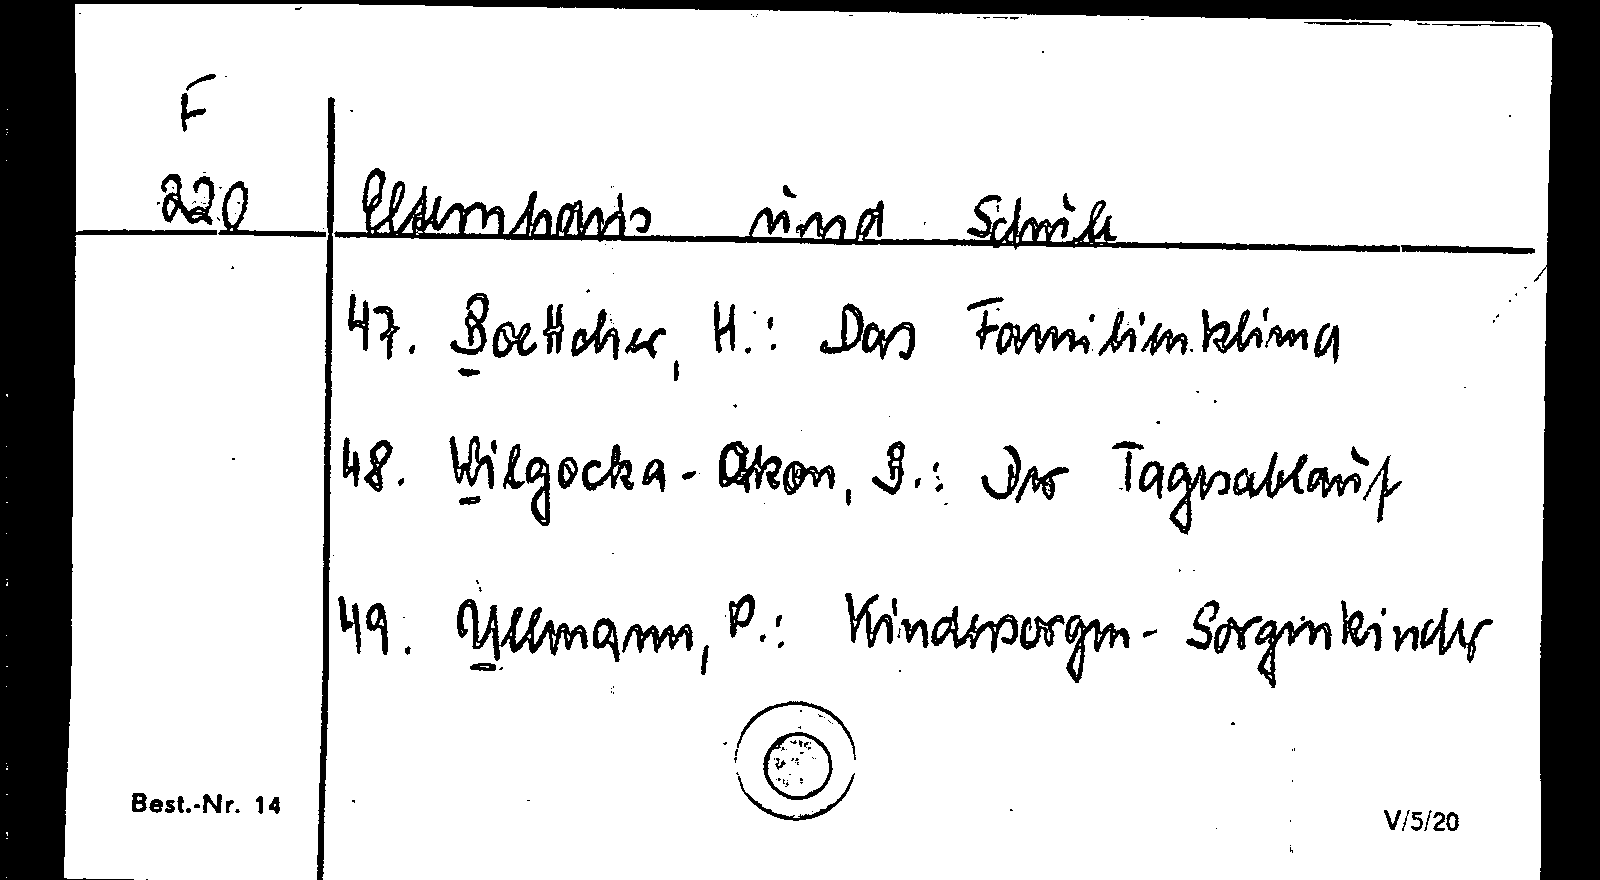 F
220
Elternhaus und Schule
47. Boettcher, H.: Das Familienklima
48. Wilgocka-Okon, B.: Der Tagesablauf
49. Ullmann, P.: Kindersorgen - Sorgenkinder
Best.-Nr. 14
V/5/20